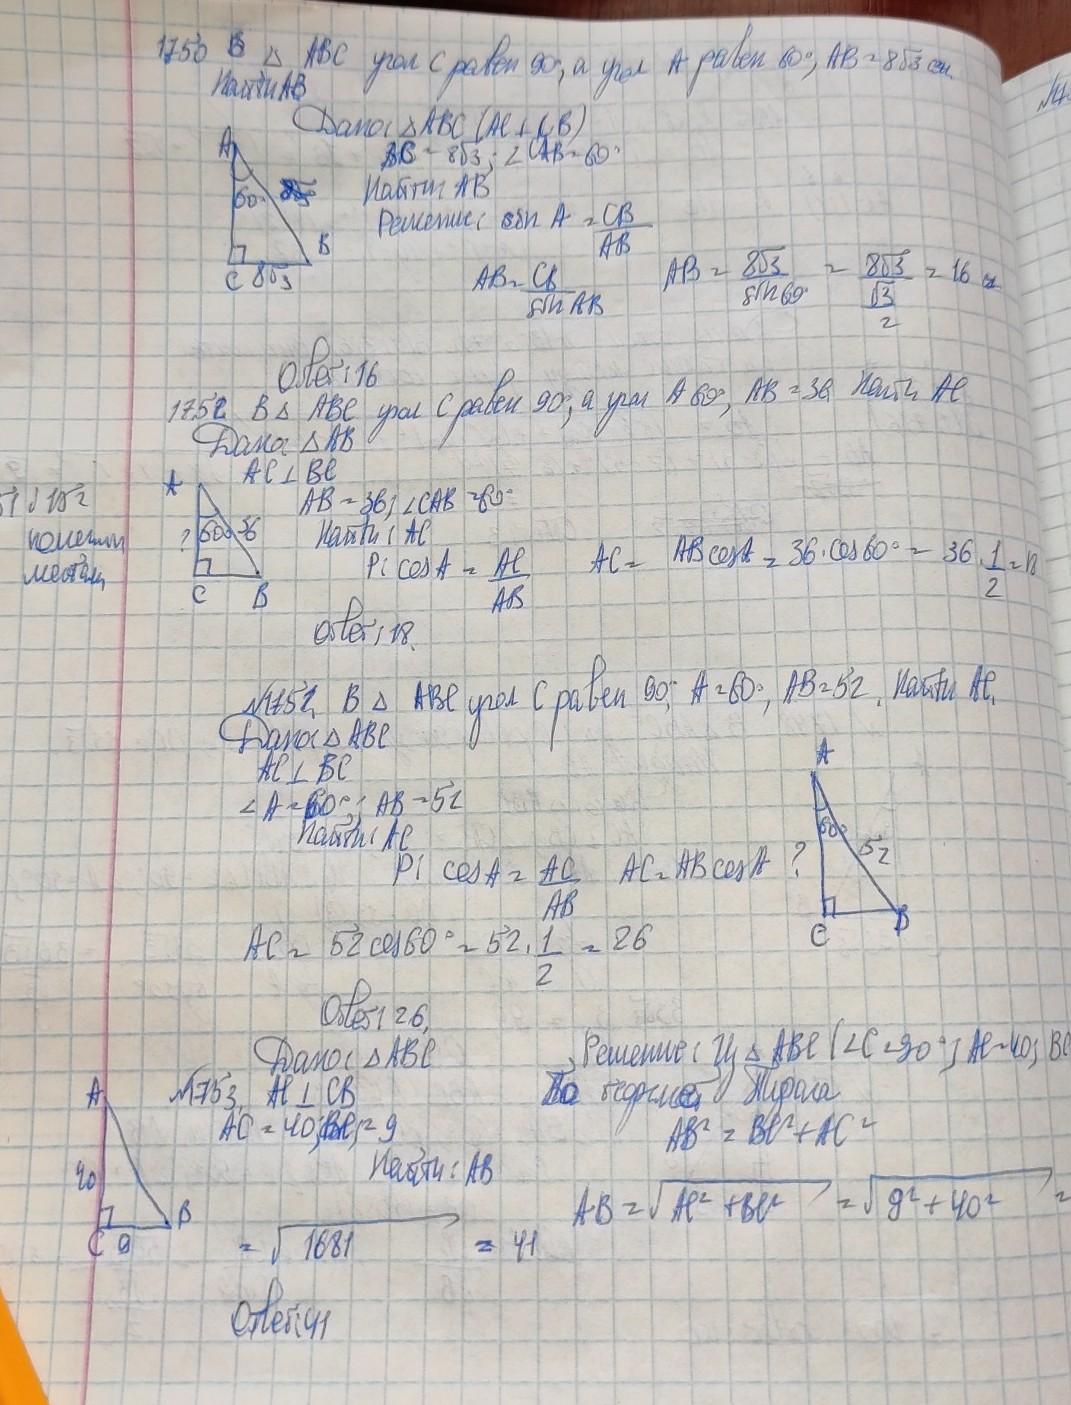 1750 В △ ABC угол C равен 90°, а угол A равен 60°, AB = 8√3 см.
Найти AB
Дано: △ ABC (AC ⊥ CB)
BC = 8√3; ∠CAB = 60°
Найти: AB
Решение: sin A = CB/AB
A
60°
B
C 8√3
AB = CB/sin AB AB = 8√3/sin 60° = 8√3/(√3/2) = 16 см
Ответ: 16
1752 В △ ABC угол C равен 90°, а угол A 60°, AB = 36 Найти AC
Дано: △ AB
AC ⊥ BC
AB = 36; ∠CAB = 60°
Найти: AC
Р: cos A = AC/AB AC = AB cos A = 36 · cos 60° = 36 · 1/2 = 18
A
? 60° 36
C B
местами
Ответ: 18.
№1751. В △ ABC угол C равен 90°, A = 60°, AB = 52. Найти AC.
Дано: △ ABC
AC ⊥ BC
∠A = 60°; AB = 52
Найти: AC
Р: cos A = AC/AB AC = AB cos A
A
60°
? 52
C B
AC = 52 cos 60° = 52 · 1/2 = 26
Ответ: 26.
Дано: △ ABC
№1753. AC ⊥ CB
AC = 40; BC = 9
Найти: AB
A
40
C 9 B
Решение: Из △ ABC (∠C = 90°; AC = 40; BC
По теореме Пифагора
AB² = BC² + AC²
AB = √AC² + BC² = √9² + 40² =
= √1681 = 41
Ответ: 41